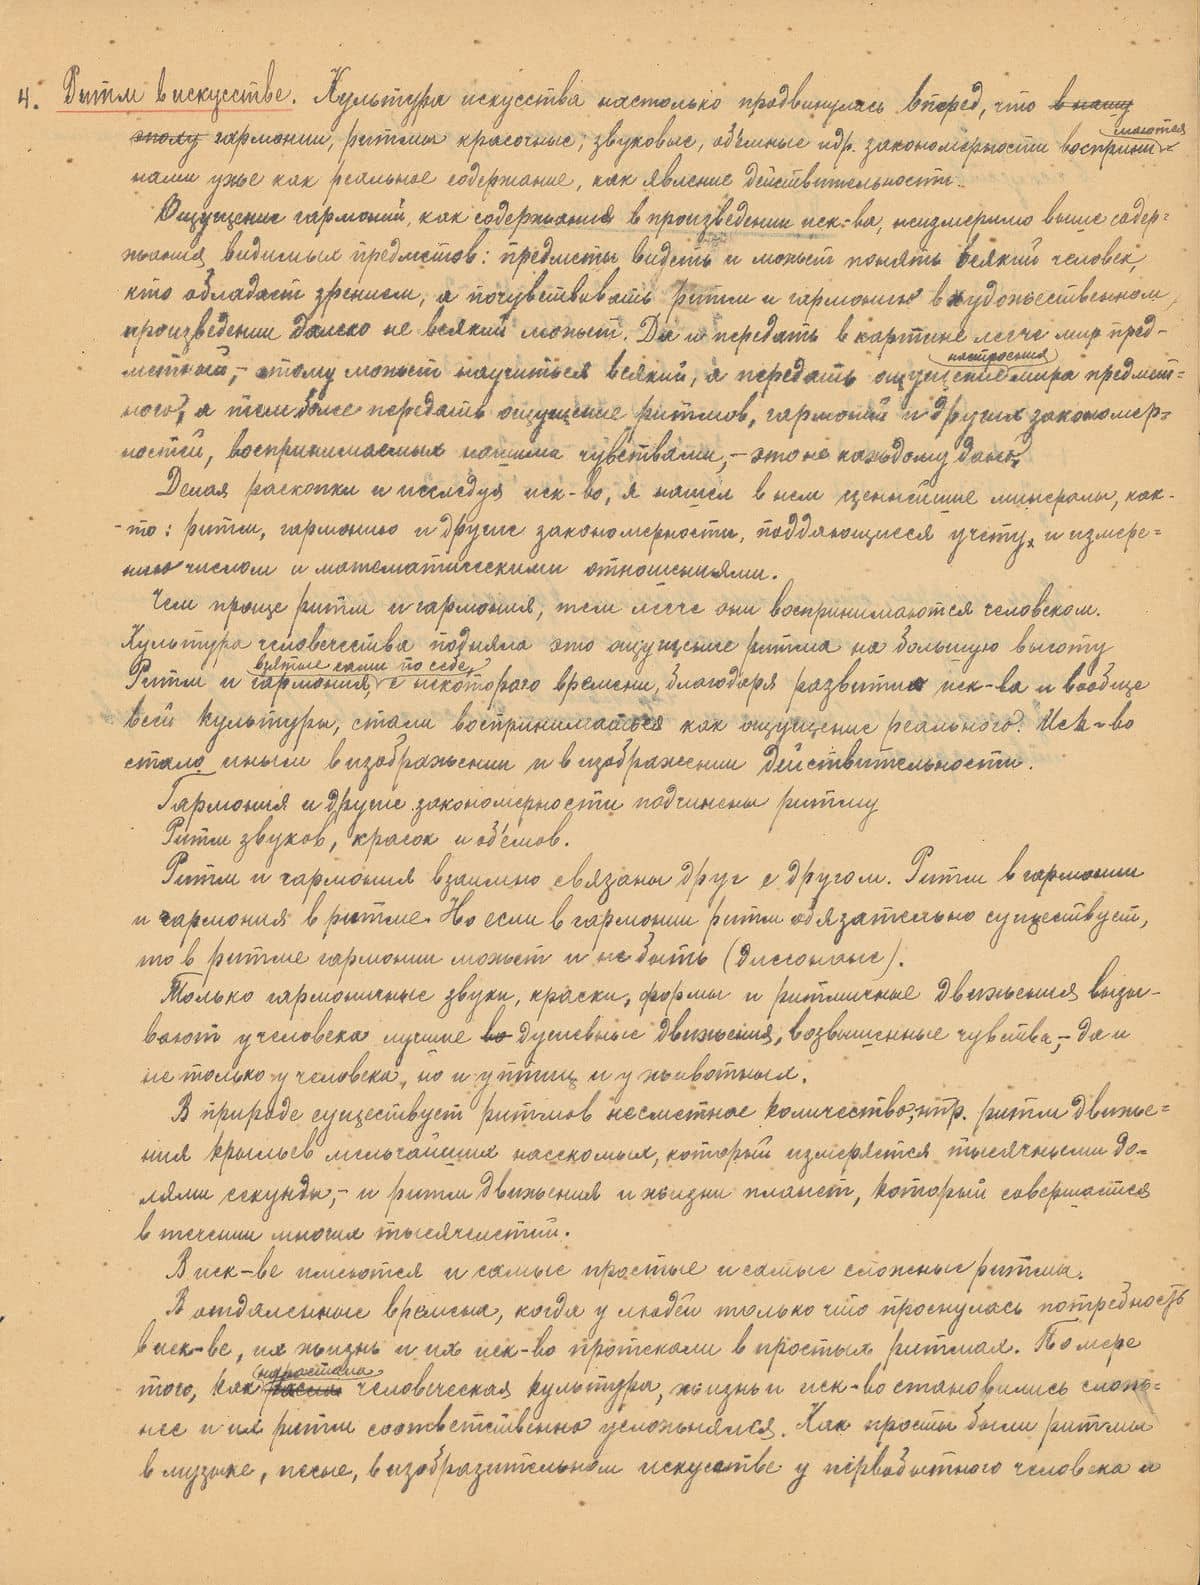 4. Ритм в искусстве. Культура искусства настолько продвинулась вперед, что в нашу
эпоху гармонии, ритмы красочные, звуковые, объемные и др. закономерности воспринимаются
нами уже как реальное содержание, как явление действительности.
Ощущение гармоний, как содержания в произведении иск-ва, неизмеримо выше содер=
жания видимых предметов: предметы видеть и может понять всякий человек,
кто обладает зрением, а почувствовать ритм и гармонию в художественном
произведении далеко не всякий может. Да и передать в картине легче мир пред-
метный, – этому может научиться всякий, а передать ощущение настроения мира предмет=
ного, а тем более передать ощущение ритмов, гармоний и других закономер=
ностей, воспринимаемых нашими чувствами, – это не каждому дано.
Делая раскопки и исследуя иск-во, я нашел в нем ценнейшие минералы, как-
-то: ритм, гармонию и другие закономерности, поддающиеся учету и измере=
нию числом и математическими отношеньями.
Чем проще ритм и гармония, тем легче они воспринимаются человеком.
Культура человечества подняла это ощущение ритма на большую высоту
Ритм и гармония, взятые сами по себе, с некоторого времени, благодаря развитию иск-ва и вообще
всей культуры, стали восприниматься как ощущение реального. Иск-во
стало иным в изображении и в изображении действительности.
Гармония и другие закономерности подчинены ритму
Ритм звуков, красок и объемов.
Ритм и гармония взаимно связаны друг с другом. Ритм в гармонии
и гармония в ритме. Но если в гармонии ритм обязательно существует,
то в ритме гармонии может и не быть (диссонанс).
Только гармоничные звуки, краски, формы и ритмичные движения вызы-
вают у человека лучшие во душевные движения, возвышенные чувства, – да и
не только у человека, но и у птиц и у животных.
В природе существует ритмов несметное количество, нпр. ритм движе=
ния крыльев мельчайших насекомых, который измеряется тысячными до=
лями секунды, – и ритм движения и жизни планет, который совершается
в течении многих тысячелетий.
В иск-ве имеются и самые простые и самые сложные ритмы.
В отдаленные времена, когда у людей только что проснулась потребность
в иск-ве, их жизнь и их иск-во протекали в простых ритмах. По мере
того, как росла нарастала человеческая культура, жизнь и иск-во становились слож=
нее и их ритм соответственно усложнялся. Как просты были ритмы
в музыке, песне, в изобразительном искусстве у первобытного человека и